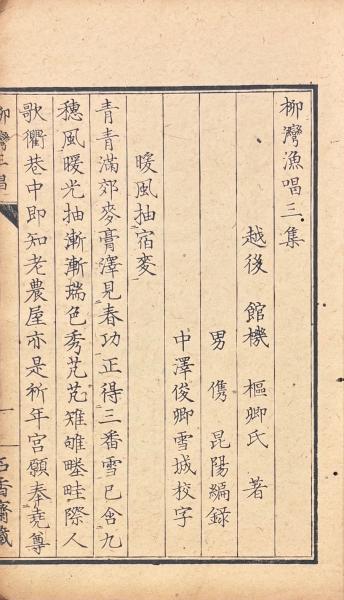 柳灣漁唱三集
越後 館機 樞卿氏 著
男 儁 昆陽編錄
中澤俊卿雪城校字
暖風抽宿麥
青青滿郊麥膏澤見春功正得三番雪已含九
穗風暖光抽漸漸瑞色秀芃芃雉雊塍畦際人
歌衢巷中即知老農屋亦是祈年宮願奉堯尊
柳灣三唱
一
石香齋藏